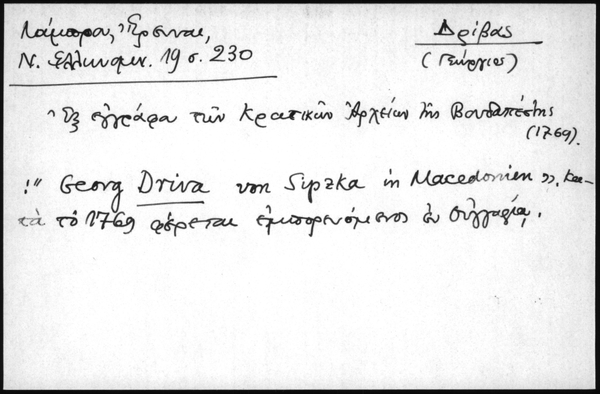 Λάμπρου, Ἔρευναι,
Ν. Ἑλληνομν. 19 σ. 230
Δρίβας
(Γεώργιος)
Ἐξ ἐγγράφου τῶν Κρατικῶν Ἀρχείων τῆς Βουδαπέστης
(1769).
:" Georg Driva von Sipzka in Macedonien », κα-
τὰ τὸ 1769 φέρεται ἐμπορευόμενος ἐν Οὑγγαρίᾳ.